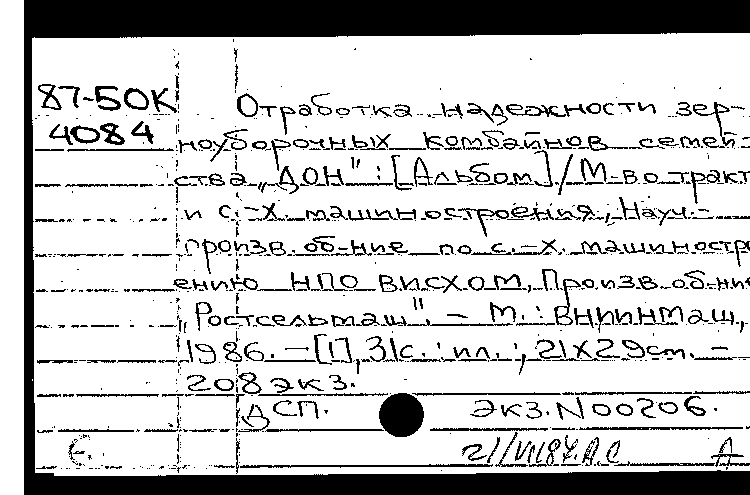 87-50К
4084
Отработка надежности зер-
ноуборочных комбайнов семей-
ства „ДОН" : [Альбом] / М-во тракт
и с.-х. машиностроения, Науч.-
произв. об-ние по с.-х. машиностро
ению НПО ВИСХОМ, Произв. об-ние
„Ростсельмаш". – М. : ВНИИНМАШ,
1986. – [1], 31с. : ил. ; 21х29см. –
208 экз.
ДСП. Экз. N 00206.
Е. 21/VII87. А.С. А